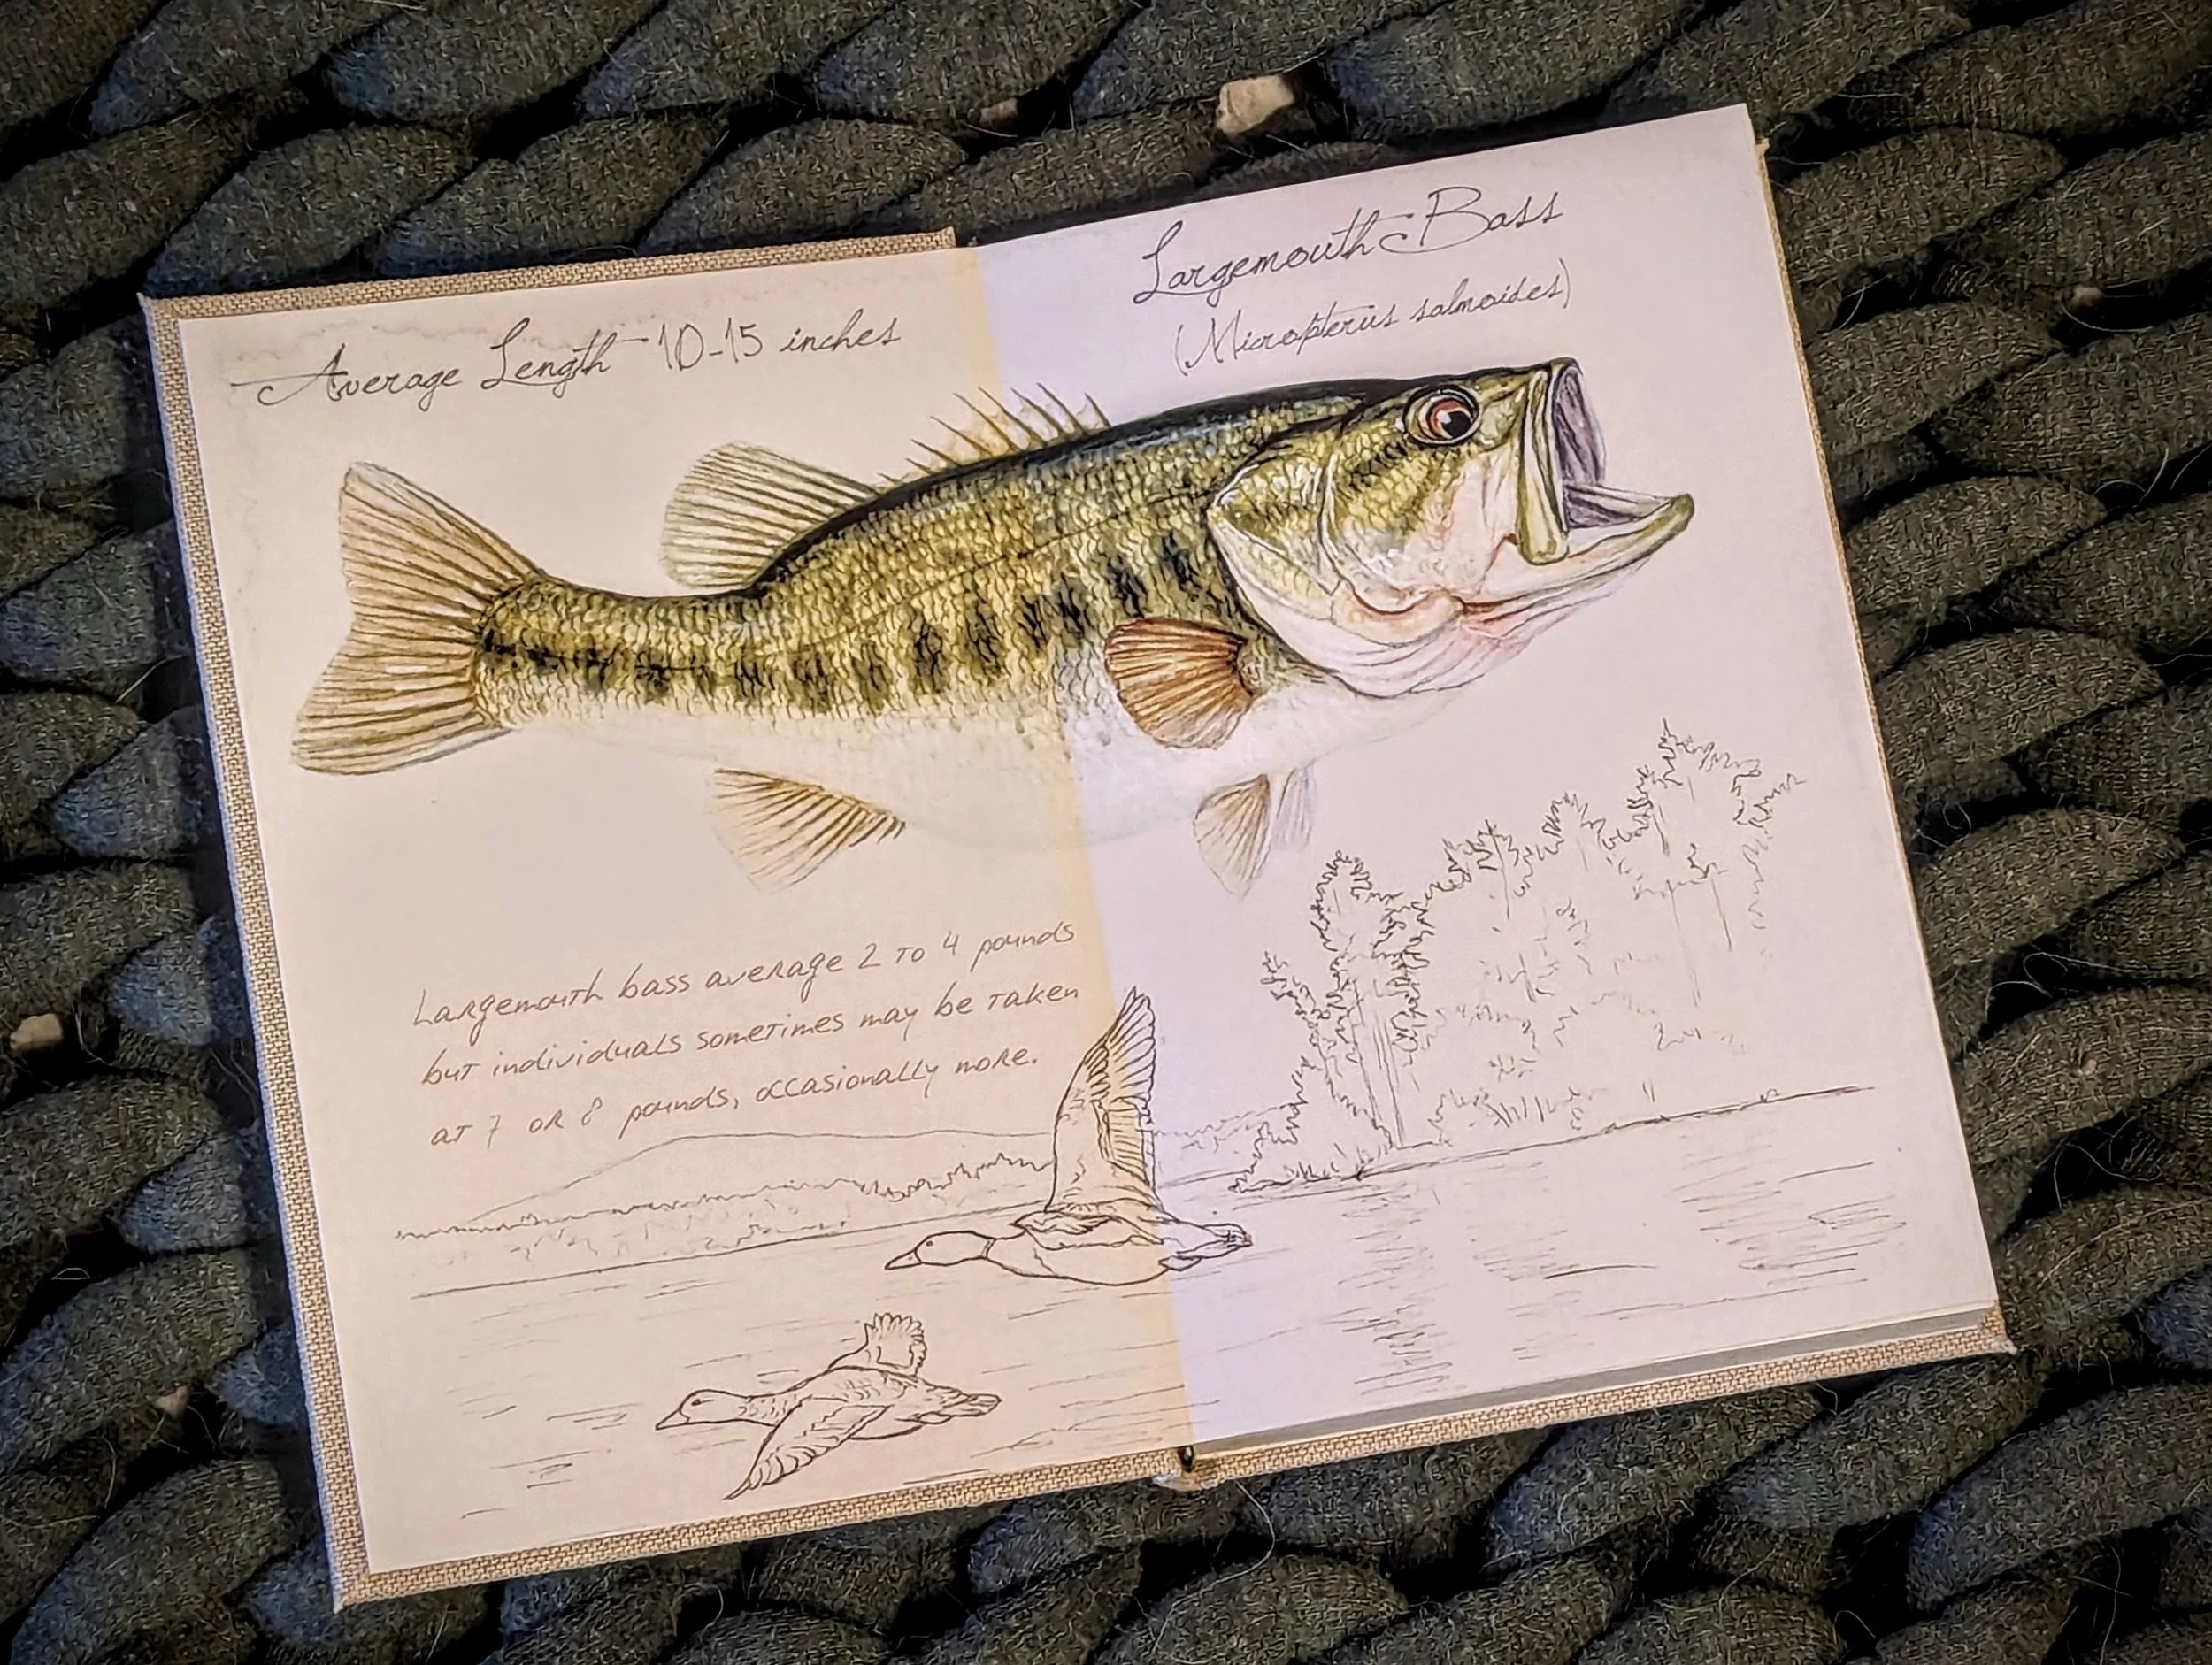 Average Length 10-15 inches
Largemouth Bass
(Micropterus salmoides)
Largemouth bass average 2 to 4 pounds
but individuals sometimes may be taken
at 7 or 8 pounds, occasionally more.